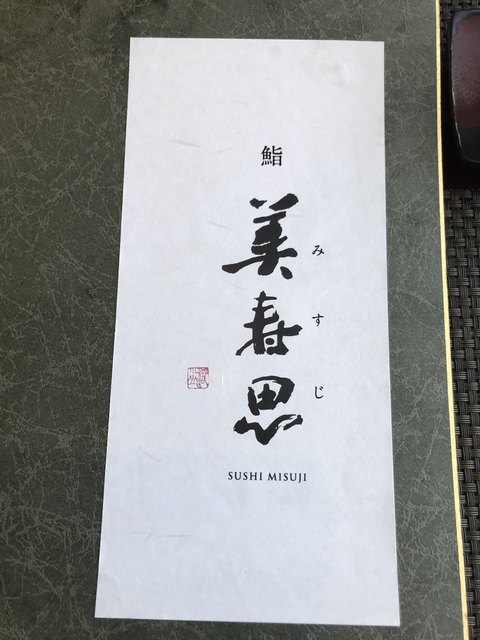 鮨
美寿思
みすじ
SUSHI MISUJI